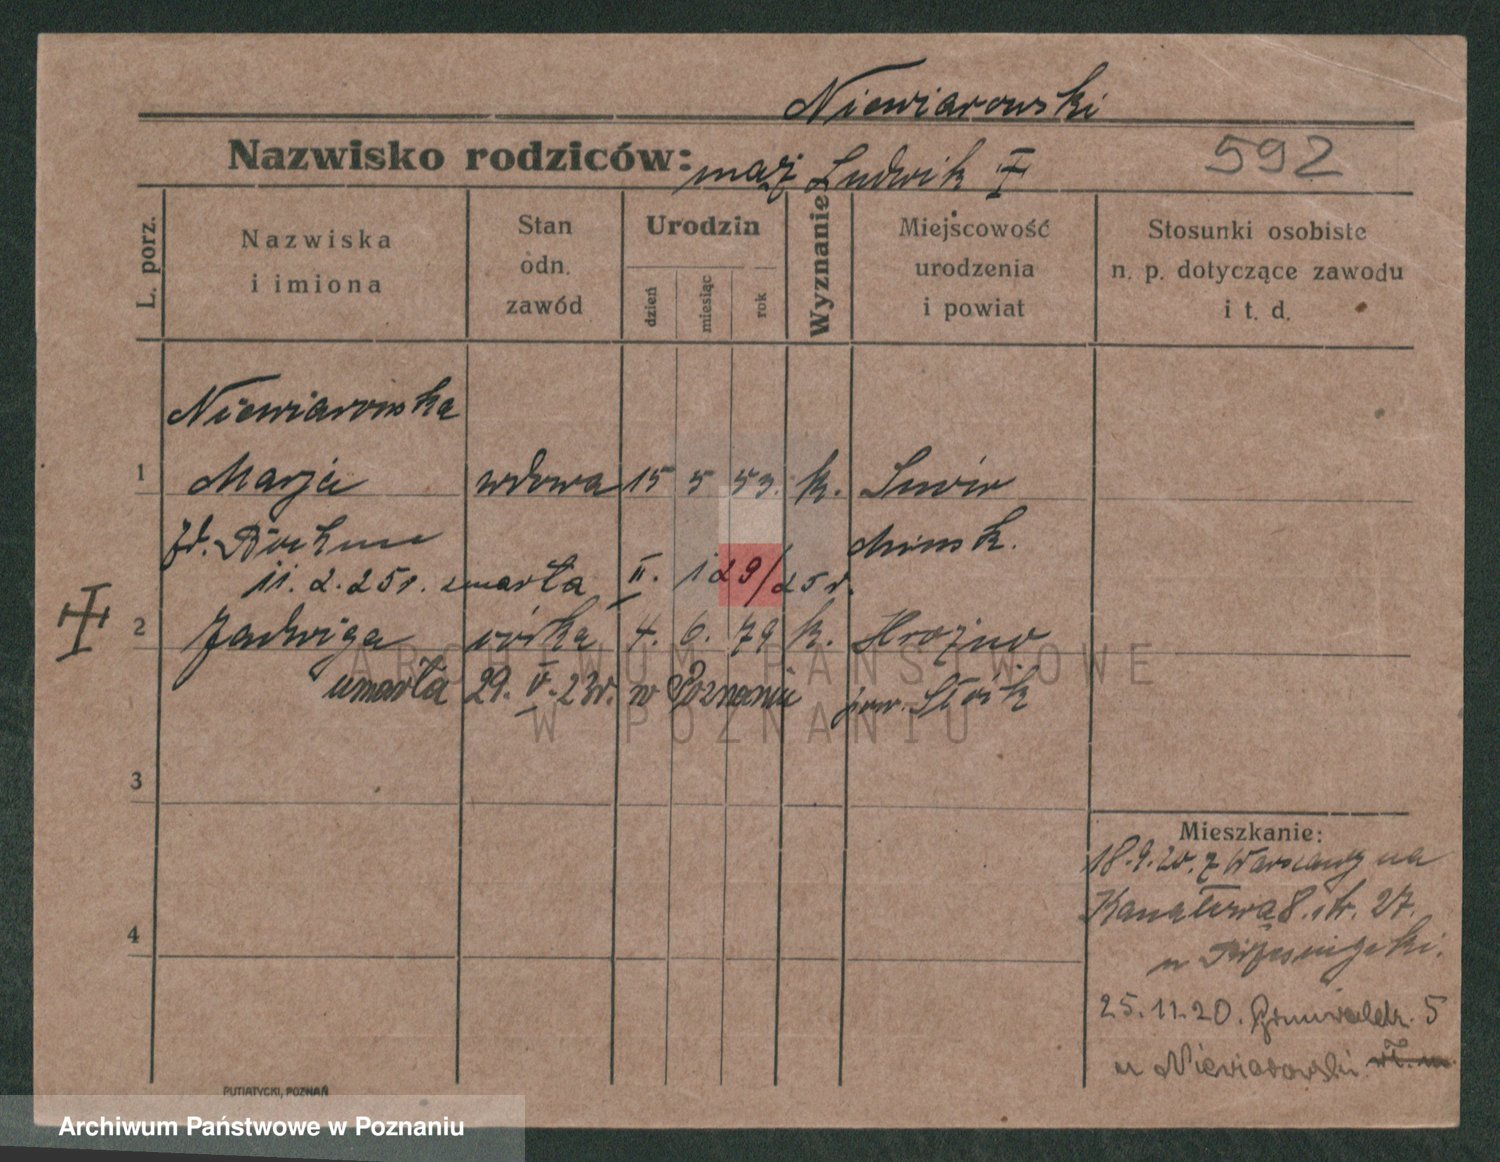 Niewiarowski
Nazwisko rodziców: mąż Ludwik
592
L. porz.
Nazwiska
i imiona
Stan
odn.
zawód
Urodzin
dzień
miesiąc
rok
Wyznanie
Miejscowość
urodzenia
i powiat
Stosunki osobiste
n. p. dotyczące zawodu
i t. d.
Niewiarowska
1 Marja wdowa 15 5 53. k.
Mińsk.
11. 2. 25r. zmarła II. 129/25 r.
2 Jadwiga córka 4. 6. 79 k.
umarła 29. V. 23r. w Poznaniu pow.
3
4
Mieszkanie:
18.9.20. z Warszawy na
Kanałowa 8. 27.
u
25.11.20. Grunwaldz. 5
u Niewiarowski
PUTIATYCKI, POZNAŃ
ARCHIWUM PAŃSTWOWE
W POZNANIU
Archiwum Państwowe w Poznaniu